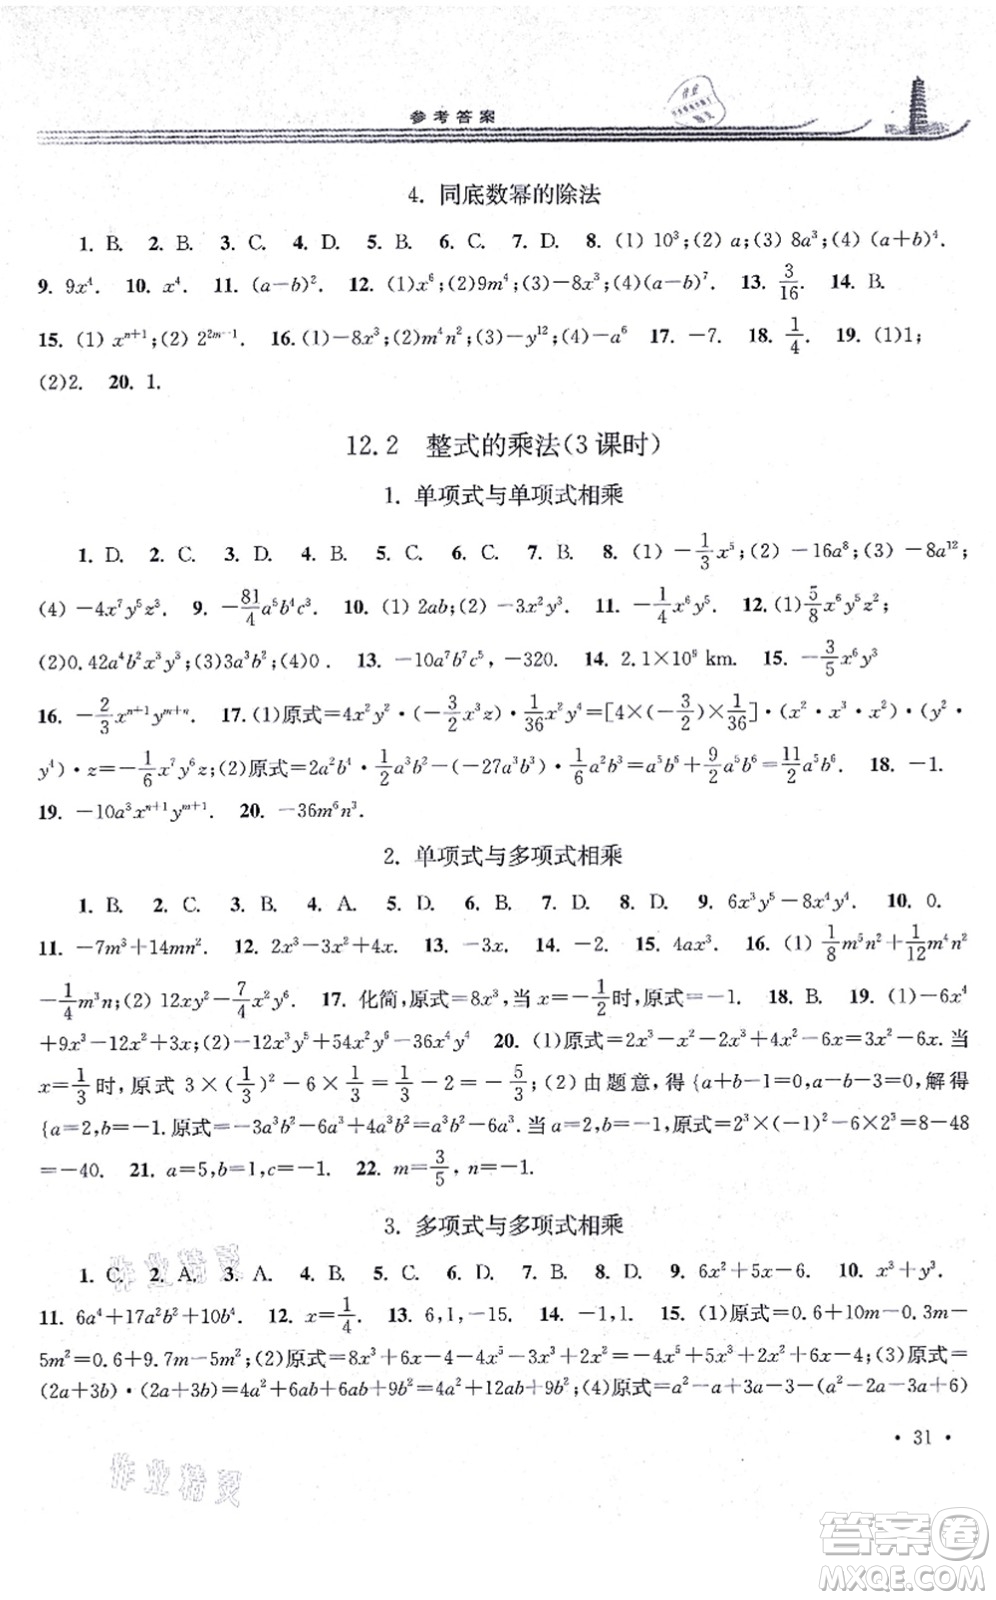 参考答案
4. 同底数幂的除法
1. B. 2. B. 3. C. 4. D. 5. B. 6. C. 7. D. 8. (1) 10³;(2) a;(3) 8a³;(4) (a+b)⁴.
9. 9x⁴. 10. x⁴. 11. (a-b)². 12. (1)x⁶;(2)9m⁴;(3)-8x³;(4)(a-b)⁷. 13. 3/16. 14. B.
15. (1) xⁿ⁺¹;(2) 2²ᵐ⁻¹. 16. (1)-8x³;(2)m⁴n²;(3)-y¹²;(4)-a⁶ 17. -7. 18. 1/4. 19. (1)1;
(2)2. 20. 1.
12.2 整式的乘法(3课时)
1. 单项式与单项式相乘
1. D. 2. C. 3. D. 4. B. 5. C. 6. C. 7. B. 8. (1) -1/3x⁵;(2) -16a⁸;(3) -8a¹²;
(4) -4x⁷y⁵z³. 9. -81/4a⁵b⁴c³. 10. (1) 2ab;(2) -3x²y³. 11. -1/4x⁶y⁵. 12. (1)5/8x⁶y⁵z²;
(2)0.42a⁴b²x³y³;(3)3a³b²;(4)0. 13. -10a⁷b⁷c⁵,-320. 14. 2.1×10⁹ km. 15. -3/5x⁶y³
16. -2/3xⁿ⁺¹yᵐ⁺ⁿ. 17. (1)原式=4x²y²·(-3/2x³z)·1/36x²y⁴=[4×(-3/2)×1/36]·(x²·x³·x²)·(y²·
y⁴)·z=-1/6x⁷y⁶z;(2)原式=2a²b⁴·1/2a³b²-(-27a³b³)·1/6a²b³=a⁵b⁶+9/2a⁵b⁶=11/2a⁵b⁶. 18. -1.
19. -10a³xⁿ⁺¹yᵐ⁺¹. 20. -36m⁶n³.
2. 单项式与多项式相乘
1. B. 2. C. 3. C. 4. A. 5. D. 6. B. 7. D. 8. D. 9. 6x³y⁵-8x⁴y⁴. 10. 0.
11. -7m³+14mn². 12. 2x³-3x²+4x. 13. -3x. 14. -2. 15. 4ax³. 16. (1) 1/8m⁵n²+1/12m⁴n²
-1/4m³n;(2) 12xy²-7/4x²y⁶. 17. 化简,原式=8x³,当x=-1/2时,原式=-1. 18. B. 19. (1)-6x⁴
+9x³-12x²+3x;(2)-12x³y⁵+54x²y⁶-36x⁴y⁴ 20. (1)原式=2x³-x²-2x³+4x²-6x=3x²-6x.当
x=1/3时,原式3×(1/3)²-6×1/3=1/3-2=-5/3;(2)由题意,得{a+b-1=0,a-b-3=0,解得
{a=2,b=-1.原式=-3a³b²-6a³+4a³b²=a³b²-6a³.当a=2,b=-1时,原式=2³×(-1)²-6×2³=8-48
=-40. 21. a=5,b=1,c=-1. 22. m=3/5,n=-1.
3. 多项式与多项式相乘
1. C. 2. A. 3. A. 4. B. 5. C. 6. D. 7. B. 8. B. 9. 6x²+5x-6. 10. x³+y³.
11. 6a⁴+17a²b²+10b⁴. 12. x=1/4. 13. 6,1,-15. 14. -1,1. 15. (1)原式=0.6+10m-0.3m-
5m²=0.6+9.7m-5m²;(2)原式=8x³+6x-4-4x⁵-3x³+2x²=-4x⁵+5x³+2x²+6x-4;(3)原式=
(2a+3b)·(2a+3b)=4a²+6ab+6ab+9b²=4a²+12ab+9b²;(4)原式=a²-a+3a-3-(a²-2a-3a+6)
·31·
作业精灵
作业精灵
答案卷
MXQE.COM